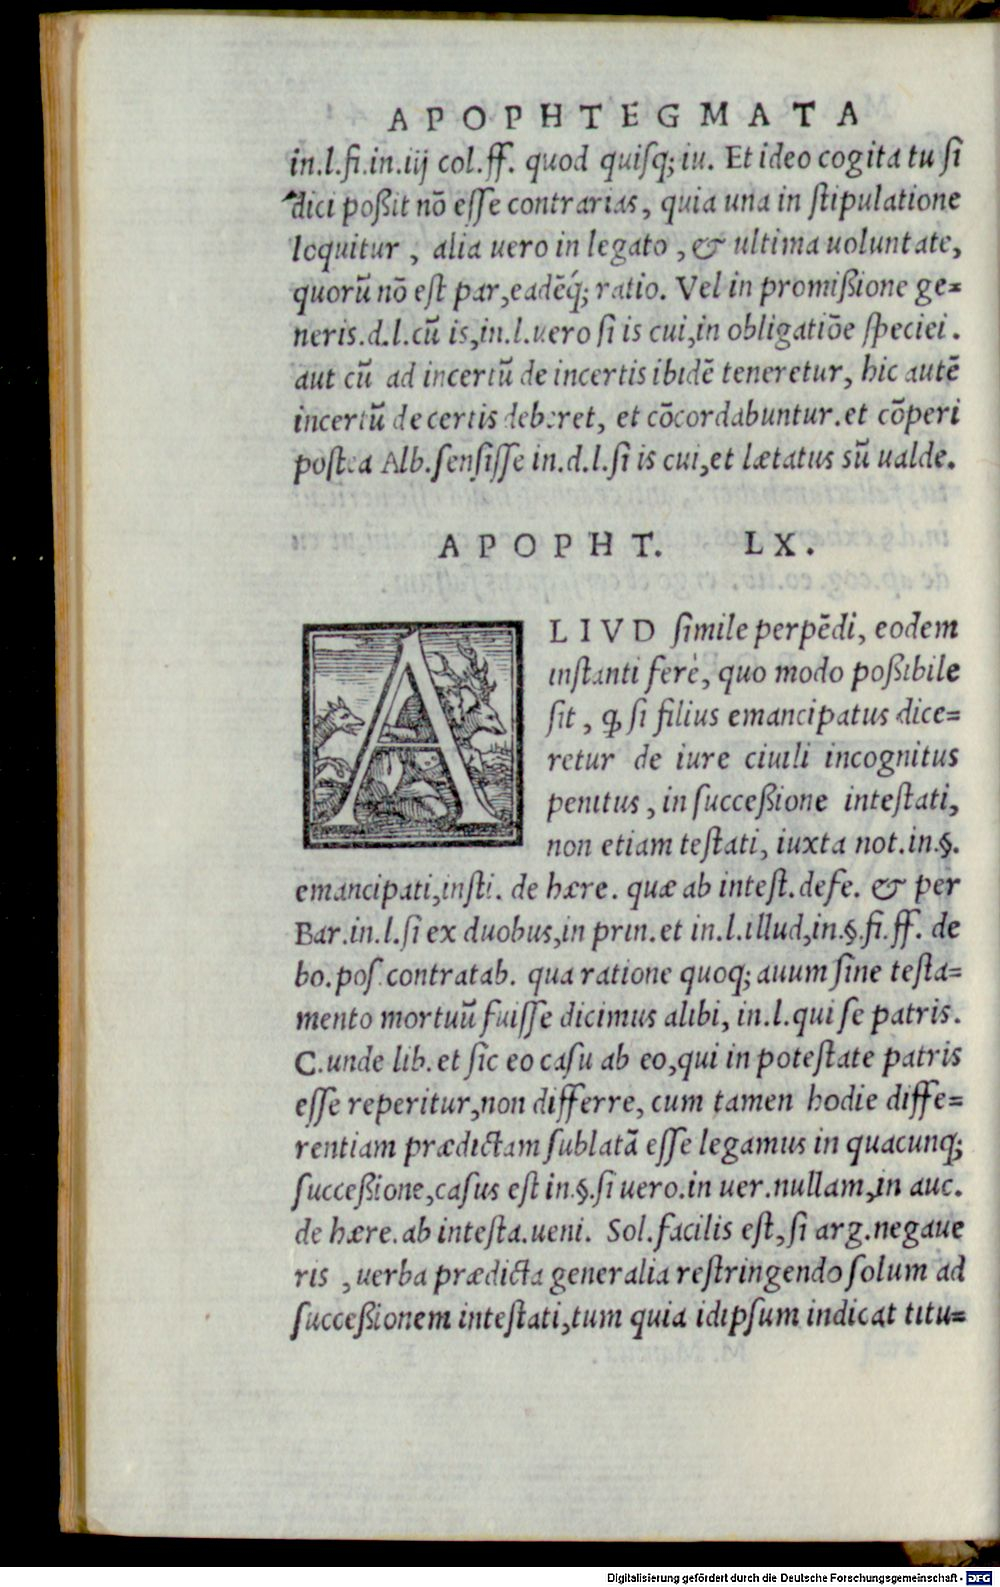 APOPHTEGMATA
in.l.fi.in.iij col.ff. quod quiſq; iu. Et ideo cogita tu ſi
dici poßit nō eſſe contrarias, quia una in ſtipulatione
loquitur, alia uero in legato, & ultima uoluntate,
quorū nō eſt par, eadēq́; ratio. Vel in promißione ge=
neris.d.l.cū is, in.l.uero ſi is cui, in obligatiōe ſpeciei.
aut cū ad incertū de incertis ibidē teneretur, hic autē
incertū de certis deberet, et cōcordabuntur. et cōperi
postea Alb. ſenſiſſe in.d.l.ſi is cui, et lætatus sū ualde.
APOPHT. LX.
ALIVD ſimile perpēdi, eodem
inſtanti ferè, quo modo poßibile
ſit, ꝙ ſi filius emancipatus dice=
retur de iure ciuili incognitus
penitus, in ſucceßione inteſtati,
non etiam teſtati, iuxta not.in.§.
emancipati, inſti. de hære. quæ ab inteſt. defe. & per
Bar.in.l.ſi ex duobus, in prin. et in.l.illud, in.§.fi.ff. de
bo.poſ.contratab. qua ratione quoq; auum ſine teſta=
mento mortuū fuiſſe dicimus alibi, in.l.qui ſe patris.
C.unde lib. et ſic eo caſu ab eo, qui in poteſtate patris
eſſe reperitur, non differre, cum tamen hodie diffe=
rentiam prædictam ſublatā eſſe legamus in quacunq;
ſucceßione, caſus eſt in.§.ſi uero.in uer.nullam, in auc.
de hære.ab inteſta.ueni. Sol.facilis eſt, ſi arg.negaue
ris, uerba prædicta generalia reſtringendo ſolum ad
ſucceßionem inteſtati, tum quia idipſum indicat titu=
Digitalisierung gefördert durch die Deutsche Forschungsgemeinschaft - DFG